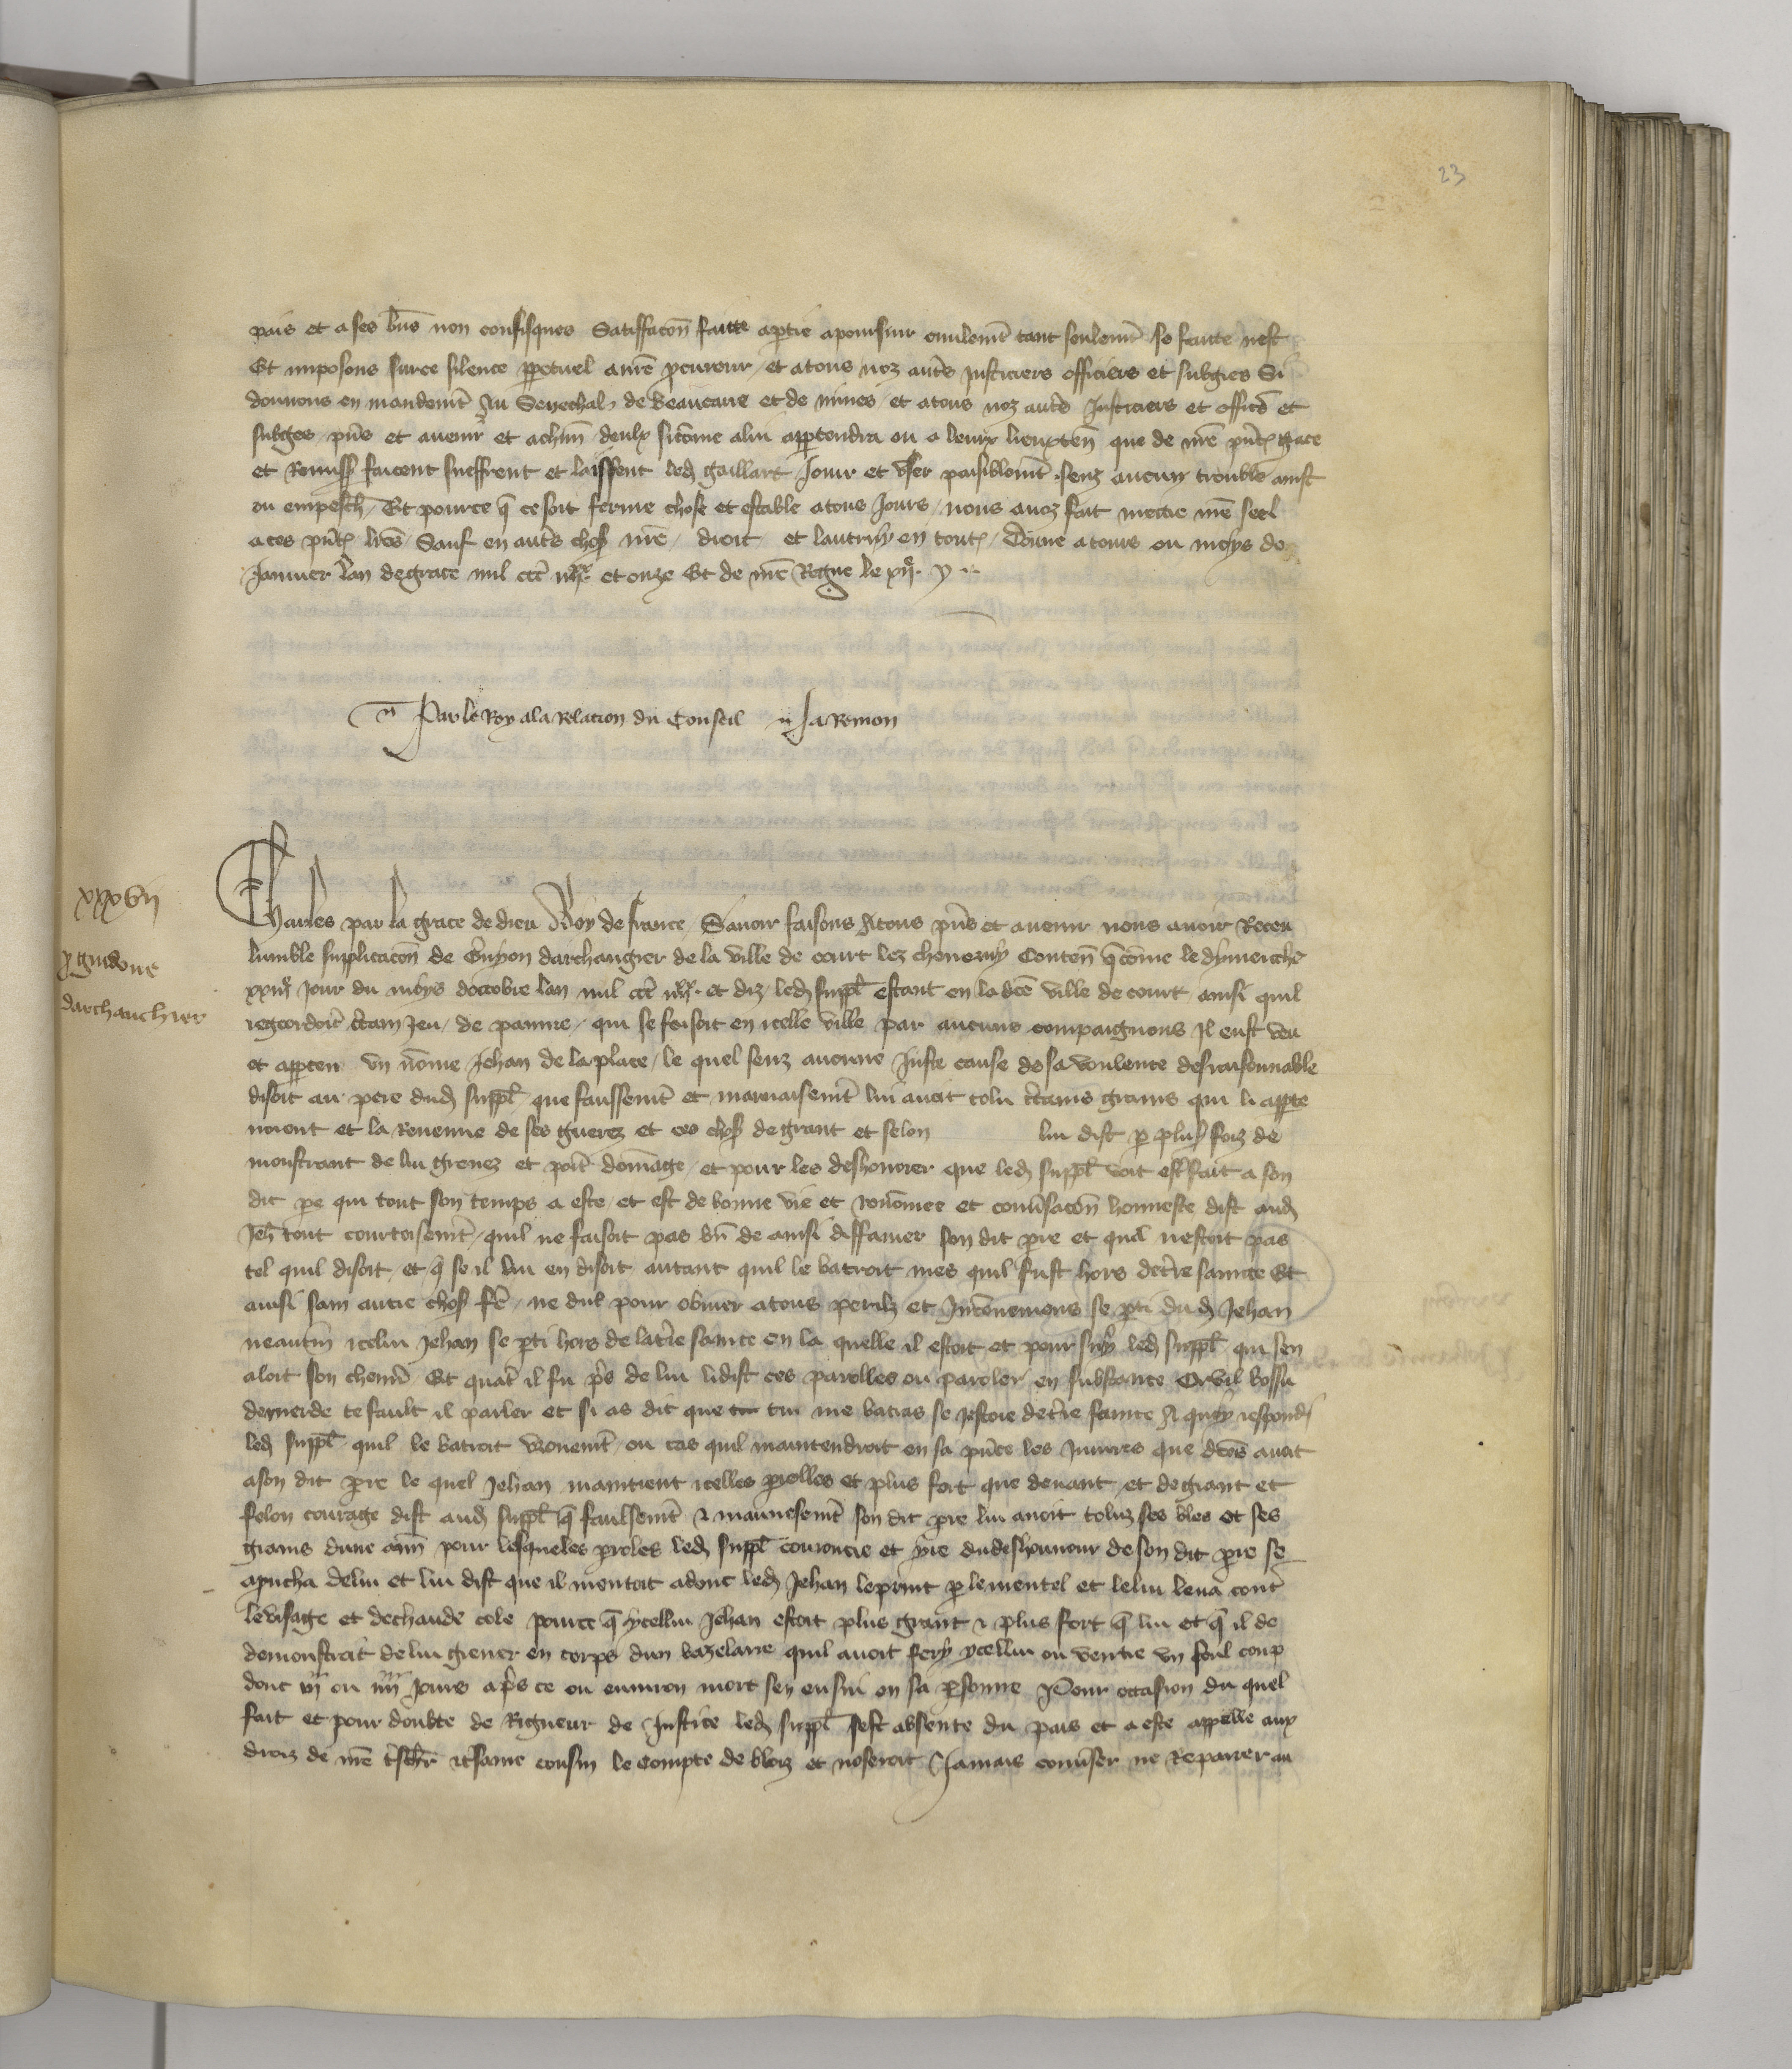 23
pais et a ses bn̄s non confisques Satiffacōn faitte a ꝑtie a poursiur civilemt̄ tant seulemt̄ se faitte nest
Et imposons sur ce silence ꝑpetuel a nr̄e ꝓcureur et a tous noz autr̄s justiciers officiers et subgies Si
donnons en mandemt̄ Au Seneschal de beaucaire et de nimes et a tous noz autr̄s Justiciers et offic̄s et
subges pn̄s et avenir et a chūn deulx sicōme a lui apꝑtendra ou a leurs lieuxten̄ que de nr̄e pn̄te grace
et Remiss̄ facent sueffrent et laissent led̄ gaillart Jouir et user paisiblemt̄ senz aucun trouble
ou empesch̄ Et pource q̄ ce soit ferme chose et estable a tous Jours nous avōz fait mettre nr̄e seel
a ces pn̄tes lr̄es Sauf en autr̄s chos̄ nr̄e droit et lautruy en toutes Donne a tours ou moys de
Janvier lan de grace mil ccc iiiixx et onze Et de nr̄e Regne le xii
Par le Roy a la Relacion du Conseil Ja Remon
xxxvii
ꝓ guidone
darchanchier
Charles par la grace de dieu Roy de france Savoir faisons A tous pn̄s et avenir nous avoir Receu
lumble supplicacōn de Guyon darchangier de la ville de court lez cheverny Conten̄ q̄ cōme le dymeiche
xxiiii jour du moys doctobre lan mil ccc iiiixx et diz led̄ suppl̄ estant en la dc̄e ville de court ainsi quil
regardoit c̄tain Jeu de paume qui se faisoit en icelle ville par aucuns compaignons Il eust veu
et apꝑceu un nōme Jehan de la place le quel senz aucune Juste cause de sa voulente desraisonnable
disoit au pere dud̄ suppl̄ que faussemt̄ et mauvaisemt̄ lui avoit tolu c̄tains grains qui li apꝑte
noient et la Revenue de ses guerez et ces chos̄ de grant et felon lui dist ꝑ plus̄ foiz de
monstrant de lui grevez et port̄ dōmage et pour les deshonorer que led̄ suppl̄ voit est̄ fait a son
dit ꝑe qui tout son temps a este et est de bonne vie et renōmee et conv̄sacōn honneste dist aud̄
Jeh̄ tout courtoisemt̄ quil ne faisoit pas bn̄ de ainsi diffamer son dit ꝑre et quil nestoit pas
tel quil disoit et q̄ se il lui en disoit autant quil le batroit mes quil fust hors de tr̄re saincte Et
ainsi sam autre chos̄ fr̄e ne dul pour obvier a tous perilz et Inconveniens se ꝑti dud̄ Jehan
neautm̄ icelui Jehan se ꝑti hors de la tr̄re saincte en la quelle il estoit et pour suy led̄ suppl̄ qui sen
aloit son chemin Et quāt il fu pr̄s de lui li dist ces parolles ou paroles en substance Orvil bossu
de merde te fault il parler et si as dit que tu me batras se jestoie de tr̄re saincte A quoy respondi
led̄ suppl̄ quil le batroit voiremt̄ ou cas quil maintendroit en sa pn̄ce les Injures que dc̄es avoit
a son dit ꝑre le quel Jehan maintient icelles ꝑolles et plus fort que devant et de grant et
felon courage dist aud̄ suppl̄ q̄ faulsemt̄ & mauvesemt̄ son dit ꝑre lui avoit toluz ses bles et ses
grains dune ann̄ pour lesqueles ꝑoles led̄ suppl̄ courcie et yre du deshonnour de son dit ꝑre se
apricha de lui et lui dist que il mentoit adonc led̄ Jehan le print ꝑ le mentel et le lui leva cont̄
le visage et de chaude cole pource q̄ ycellui Jehan estoit plus grant & plus fort q̄ lui et q̄ il de
demonstrāt de lui grever en corps dun bazelaire quil avoit fery ycellui ou ventre un seul coup
dont iii ou iiii Jours apr̄s ce ou environ mort sen ensui en sa ꝑsonne Pour occasion du quel
fait et pour doubte de Rigueur de Justice led̄ suppl̄ sest absente du pais et a este appelle aux
droiz de nr̄e tr̄sch̄r et same cousin le Compte de bloiz et noseroit Jamais conv̄ser ne Reparer au